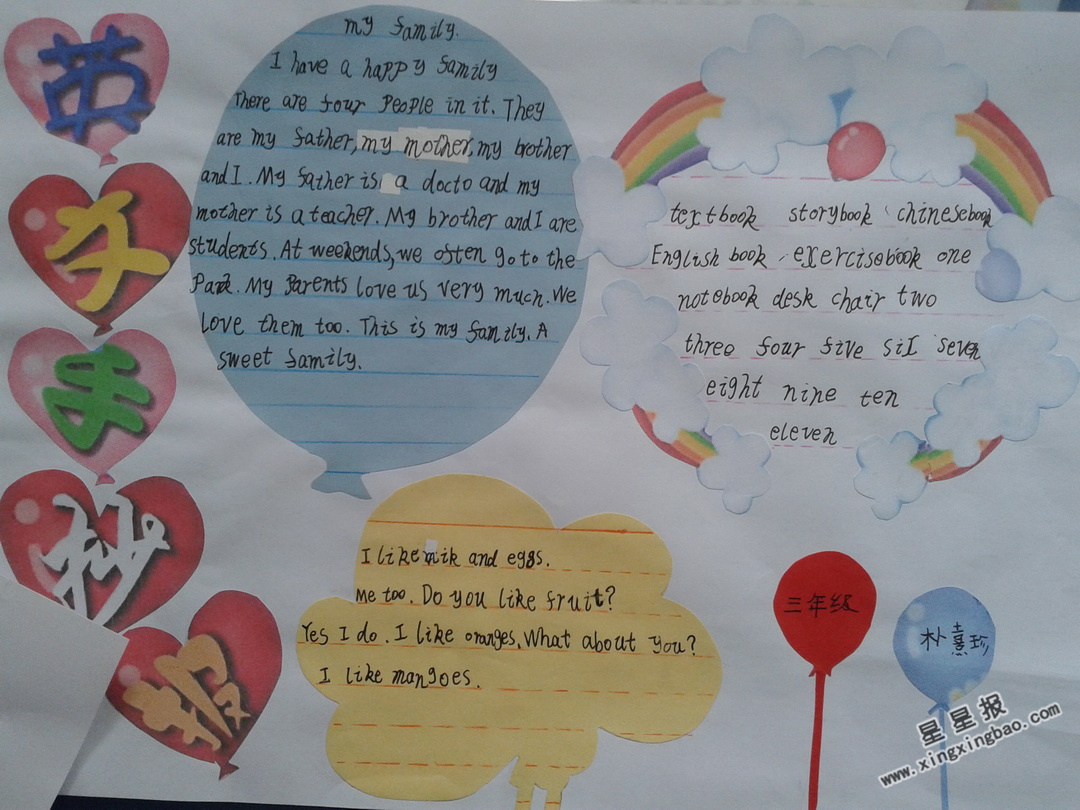 英
文
手
抄
报
my family.
I have a happy family
There are four people in it. They
are my father, my mother, my brother
and I. My father is a docto and my
mother is a teacher. My brother and I are
students. At weekends, we often go to the
Park. My Parents love us very much. We
love them too. This is my family. A
sweet family.
textbook storybook、chinesebook
English book、exercisebook one
notebook desk chair two
three four five siI seven
eight nine ten
eleven
I like mik and eggs.
Me too. Do you like fruit?
Yes I do. I like oranges. What about you?
I like mangoes.
三年级
朴熹珍
星星报
www.xingxingbao.com